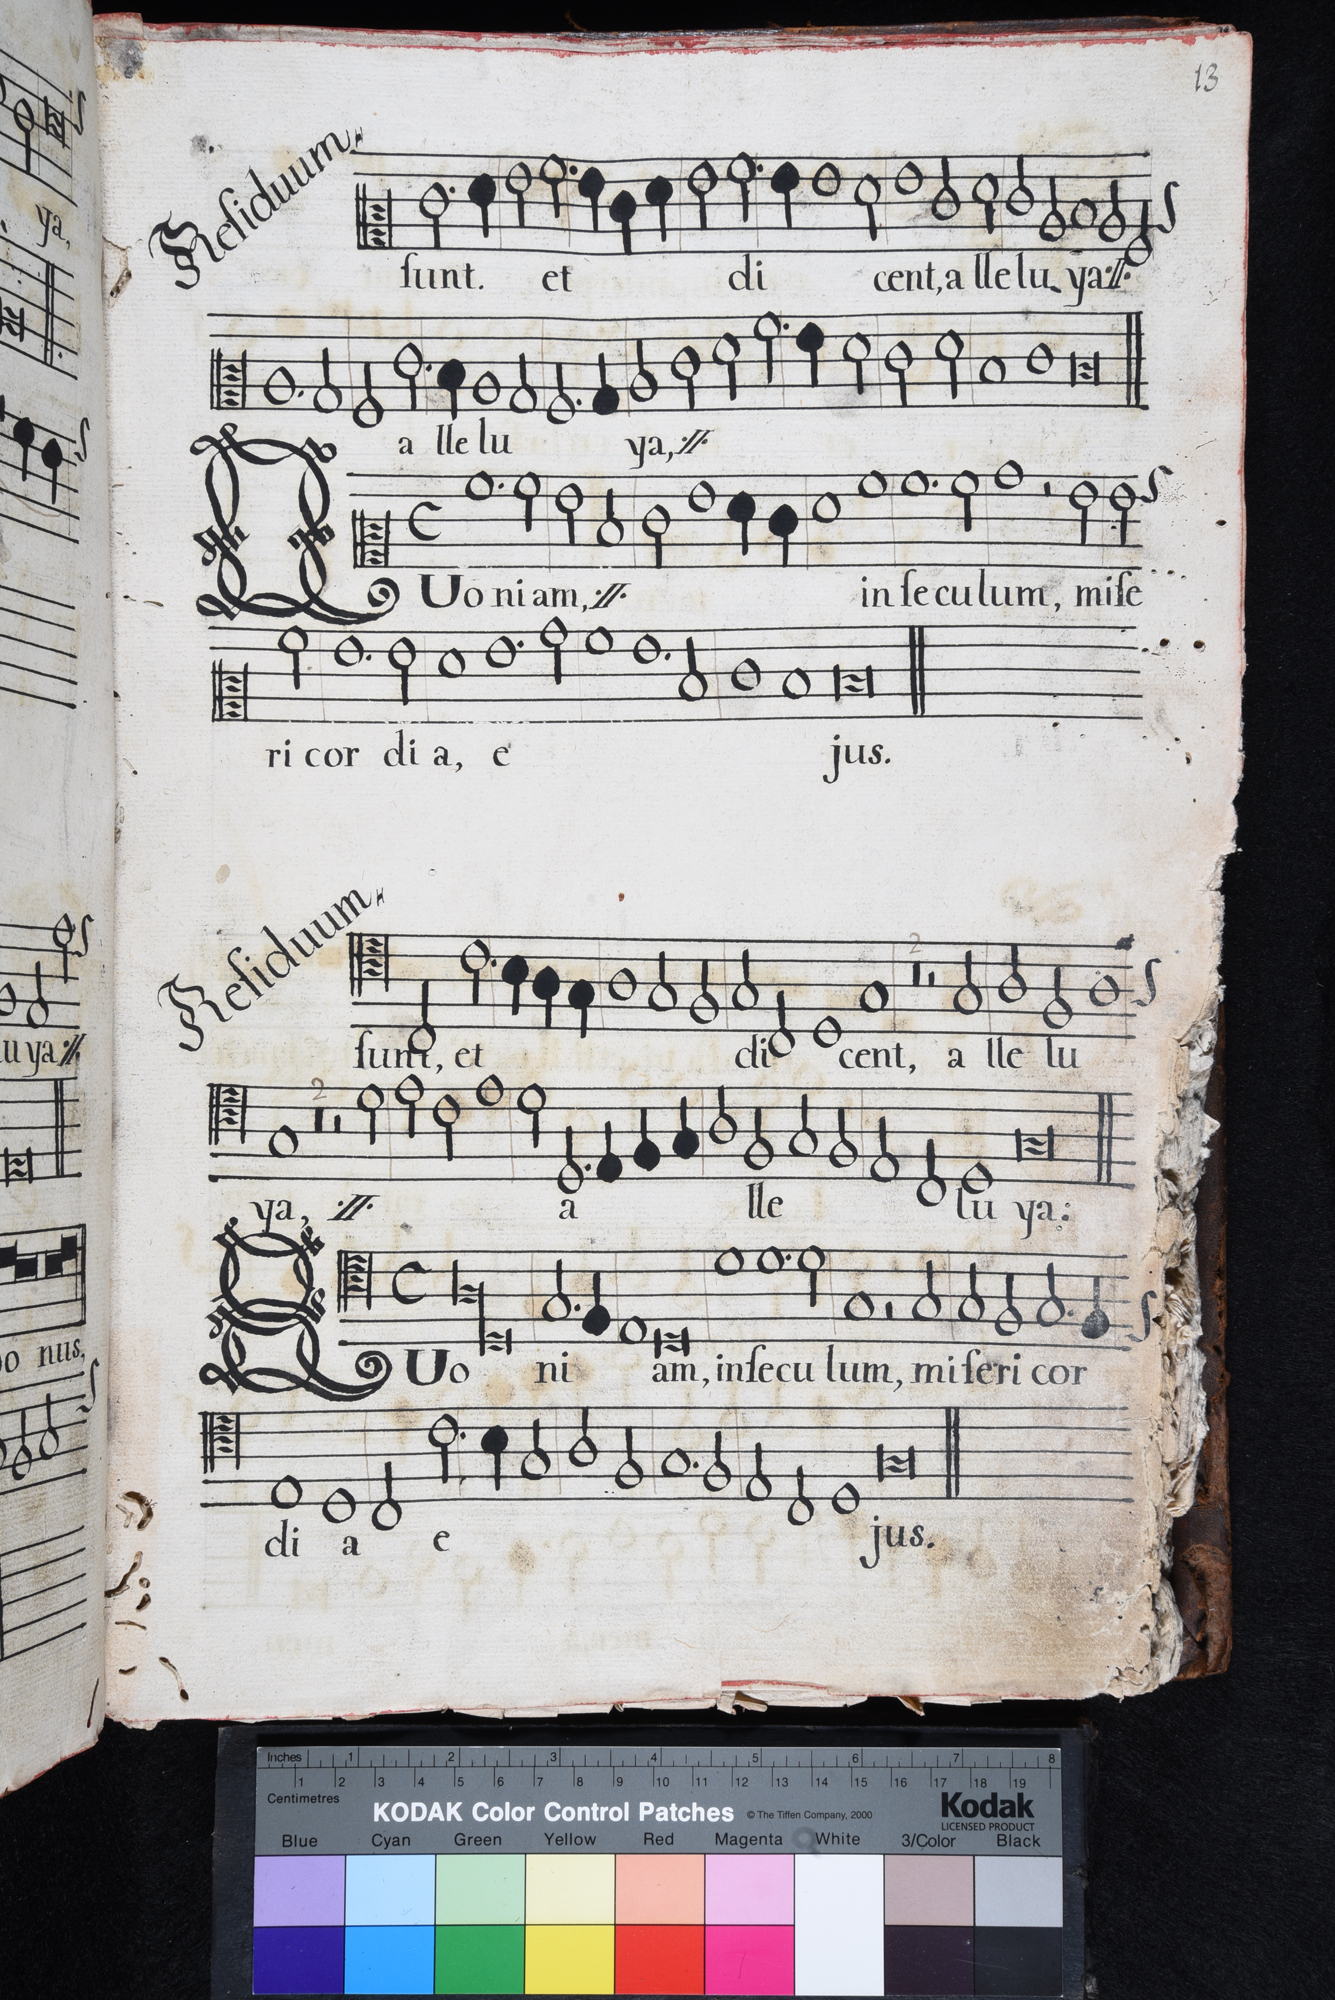 13
Residuum
sunt. et di cent, a lle lu ya://.
a lle lu ya, //.
QUo ni am, //. in se cu lum, mise
ri cor di a, e jus.
Residuum
sunt, et di cent, a lle lu
2
ya, //. a lle lu ya:
2
QUo ni am, in secu lum, mi seri cor
di a e jus.
ya,
lu ya //.
bo nus,
Inches 1 2 3 4 5 6 7 8
1 2 3 4 5 6 7 8 9 10 11 12 13 14 15 16 17 18 19
Centimetres
KODAK Color Control Patches © The Tiffen Company, 2000
Kodak
LICENSED PRODUCT
Blue Cyan Green Yellow Red Magenta White 3/Color Black